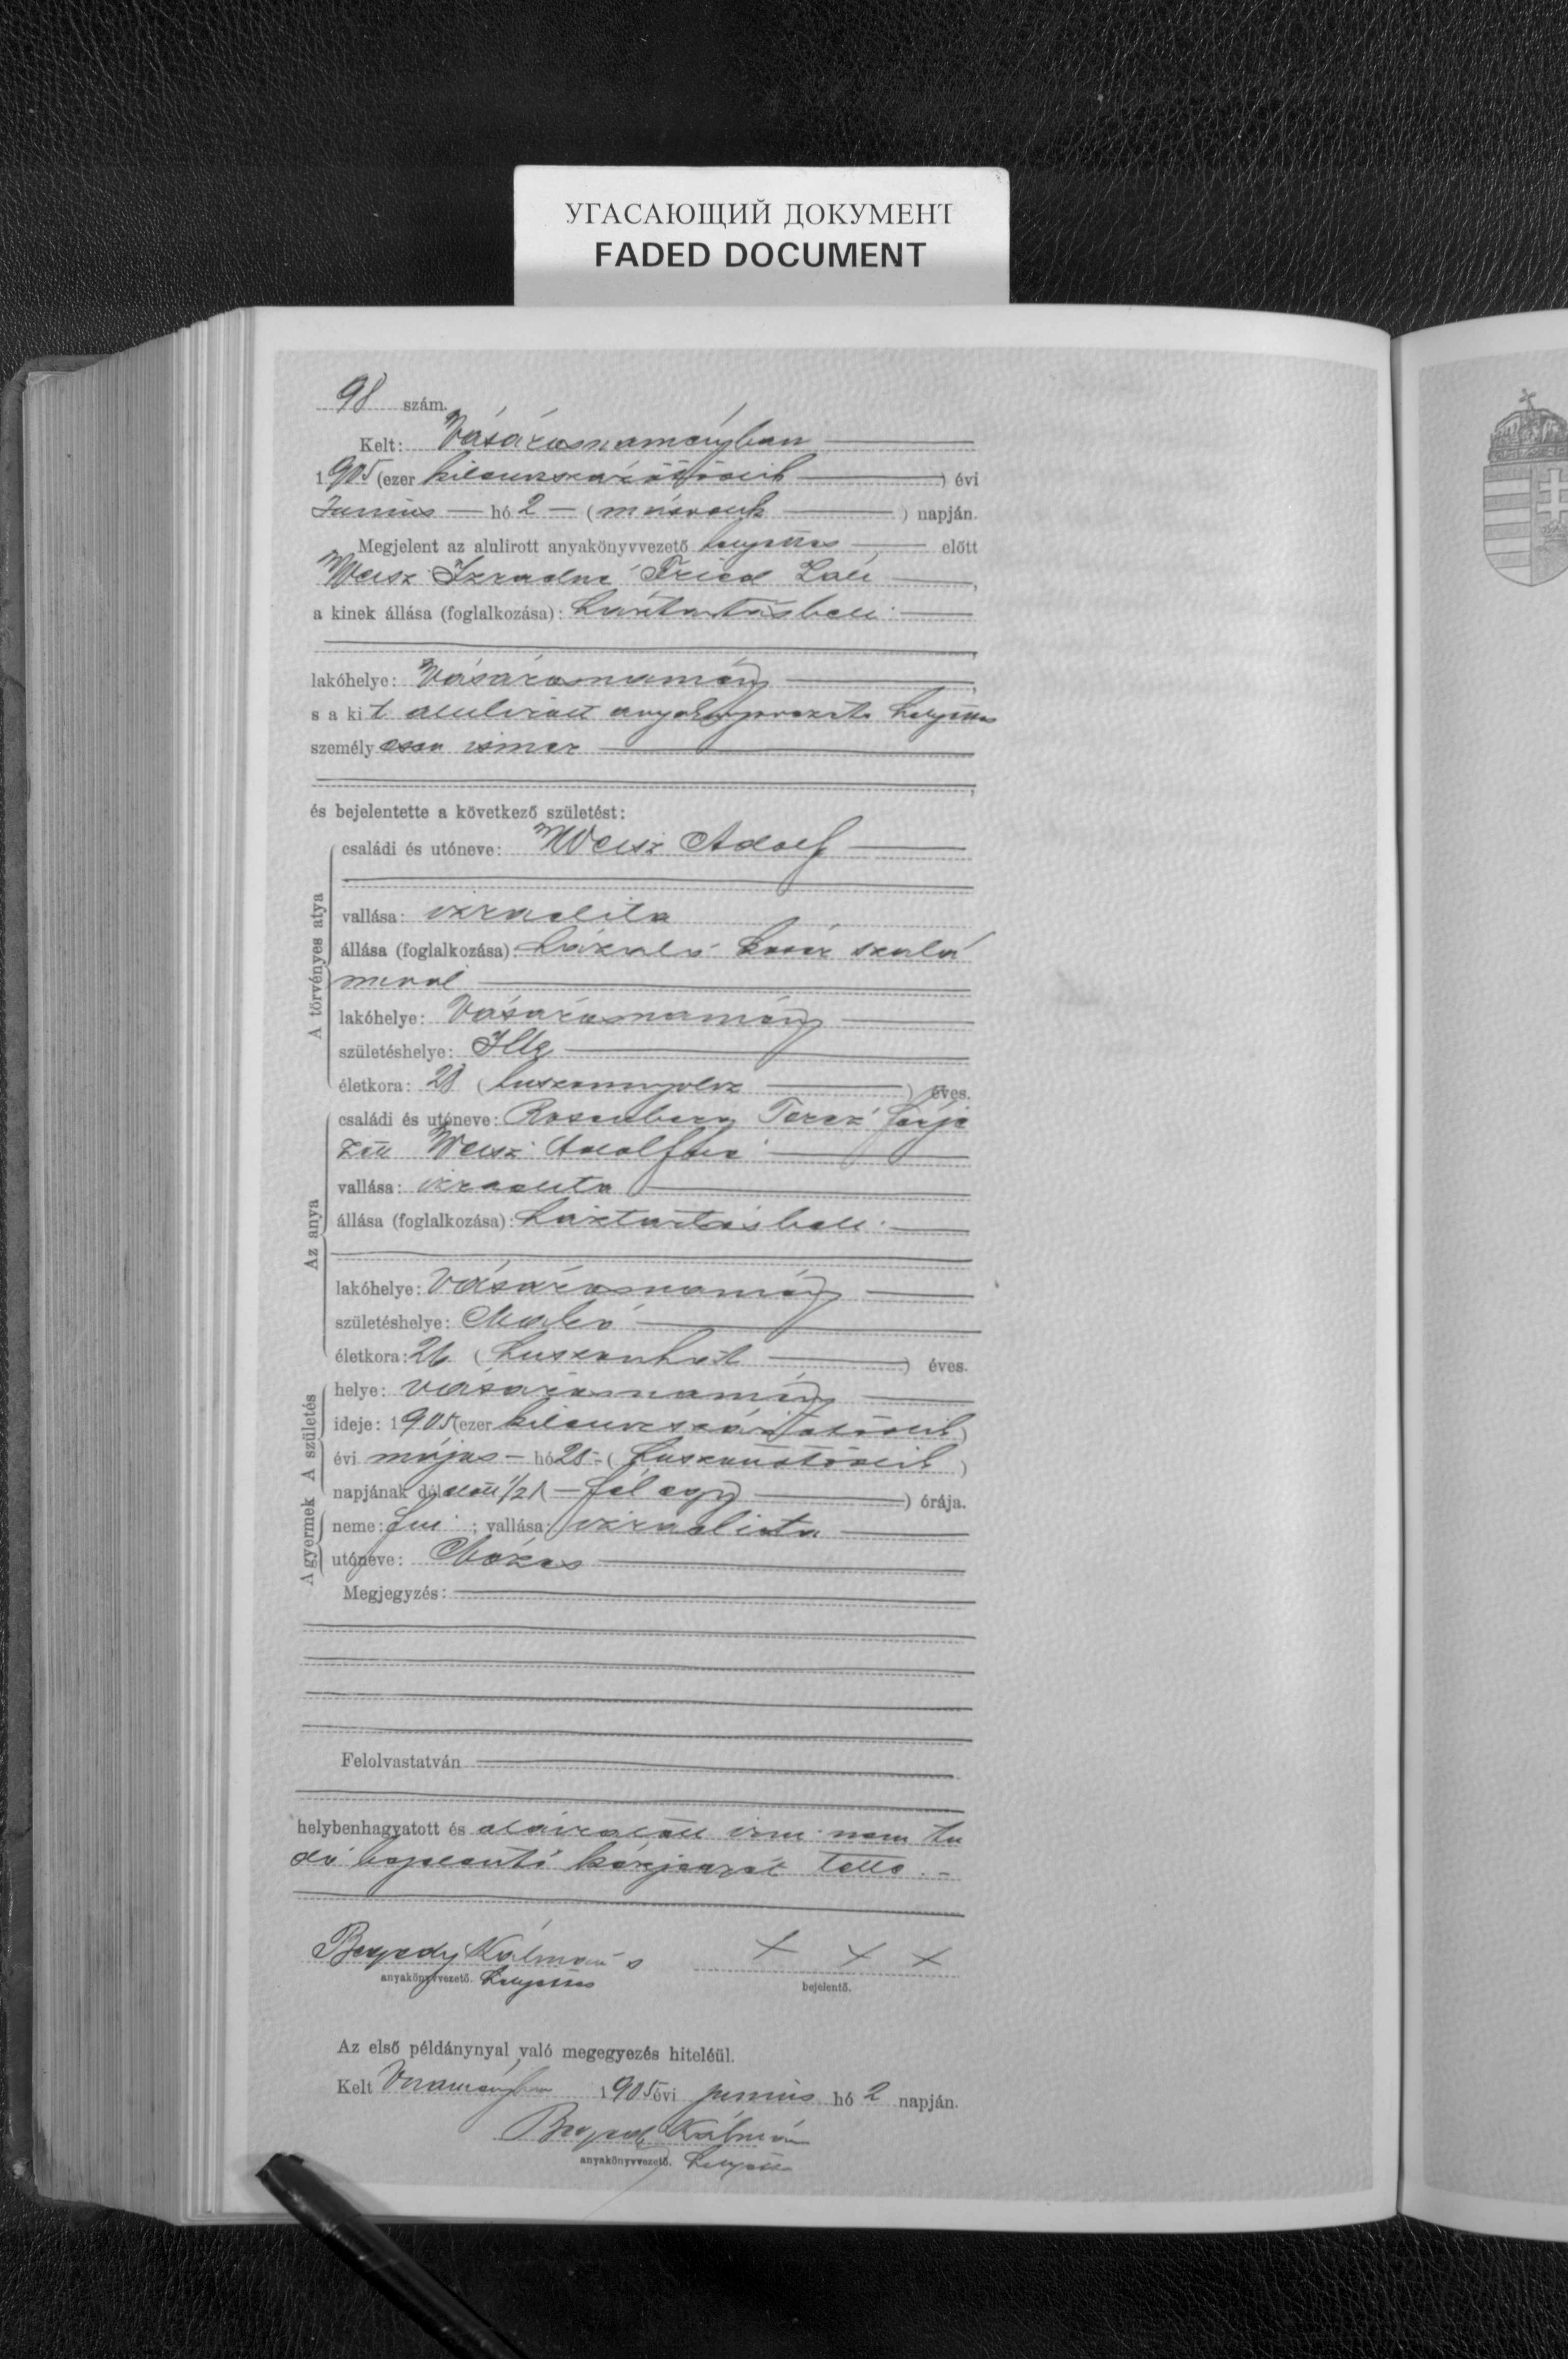 УГАСАЮЩИЙ ДОКУМЕНТ
FADED DOCUMENT
98 szám.
Kelt: Vásárosnaményban
1905 (ezer kilenczszázötödik) évi
Junius hó 2 (második) napján.
Megjelent az alulirott anyakönyvvezető helyettes előtt
Weisz Izraelné Fried Láli,
a kinek állása (foglalkozása): háztartásbeli
lakóhelye: Vásárosnamény,
s a kit alulirott anyakönyvvezető helyettes
személyesen ismer
és bejelentette a következő születést:
A törvényes atya
családi és utóneve: Weisz Adolf
vallása: izraelita
állása (foglalkozása): házaló
lakóhelye: Vásárosnamény
születéshelye: Ilk
életkora: 28 (huszonnyolcz) éves.
Az anya
családi és utóneve: Rosenberg Teréz férje
zett Weisz Adolfné
vallása: izraelita
állása (foglalkozása): háztartásbeli
lakóhelye: Vásárosnamény
születéshelye: Makó
életkora: 26 (huszonhat) éves.
A születés
helye: Vásárosnamény
ideje: 1905 (ezer kilenczszázötödik)
évi május hó 25 (huszonötödik)
napjának dél előtt 1/21 fél egy) órája.
A gyermek
neme: fiu; vallása: izraelita
utóneve: Mózes
Megjegyzés:
Felolvastatván
helybenhagyatott és aláiratott irni nem tu
dó bejelentő kézjegyét tette.
Kálmán s
anyakönyvvezető. helyettes
+ + +
bejelentő.
Az első példánynyal való megegyezés hiteléül.
Kelt Vnaményban 1905 évi junius hó 2 napján.
Kálmán
anyakönyvvezető. helyettes